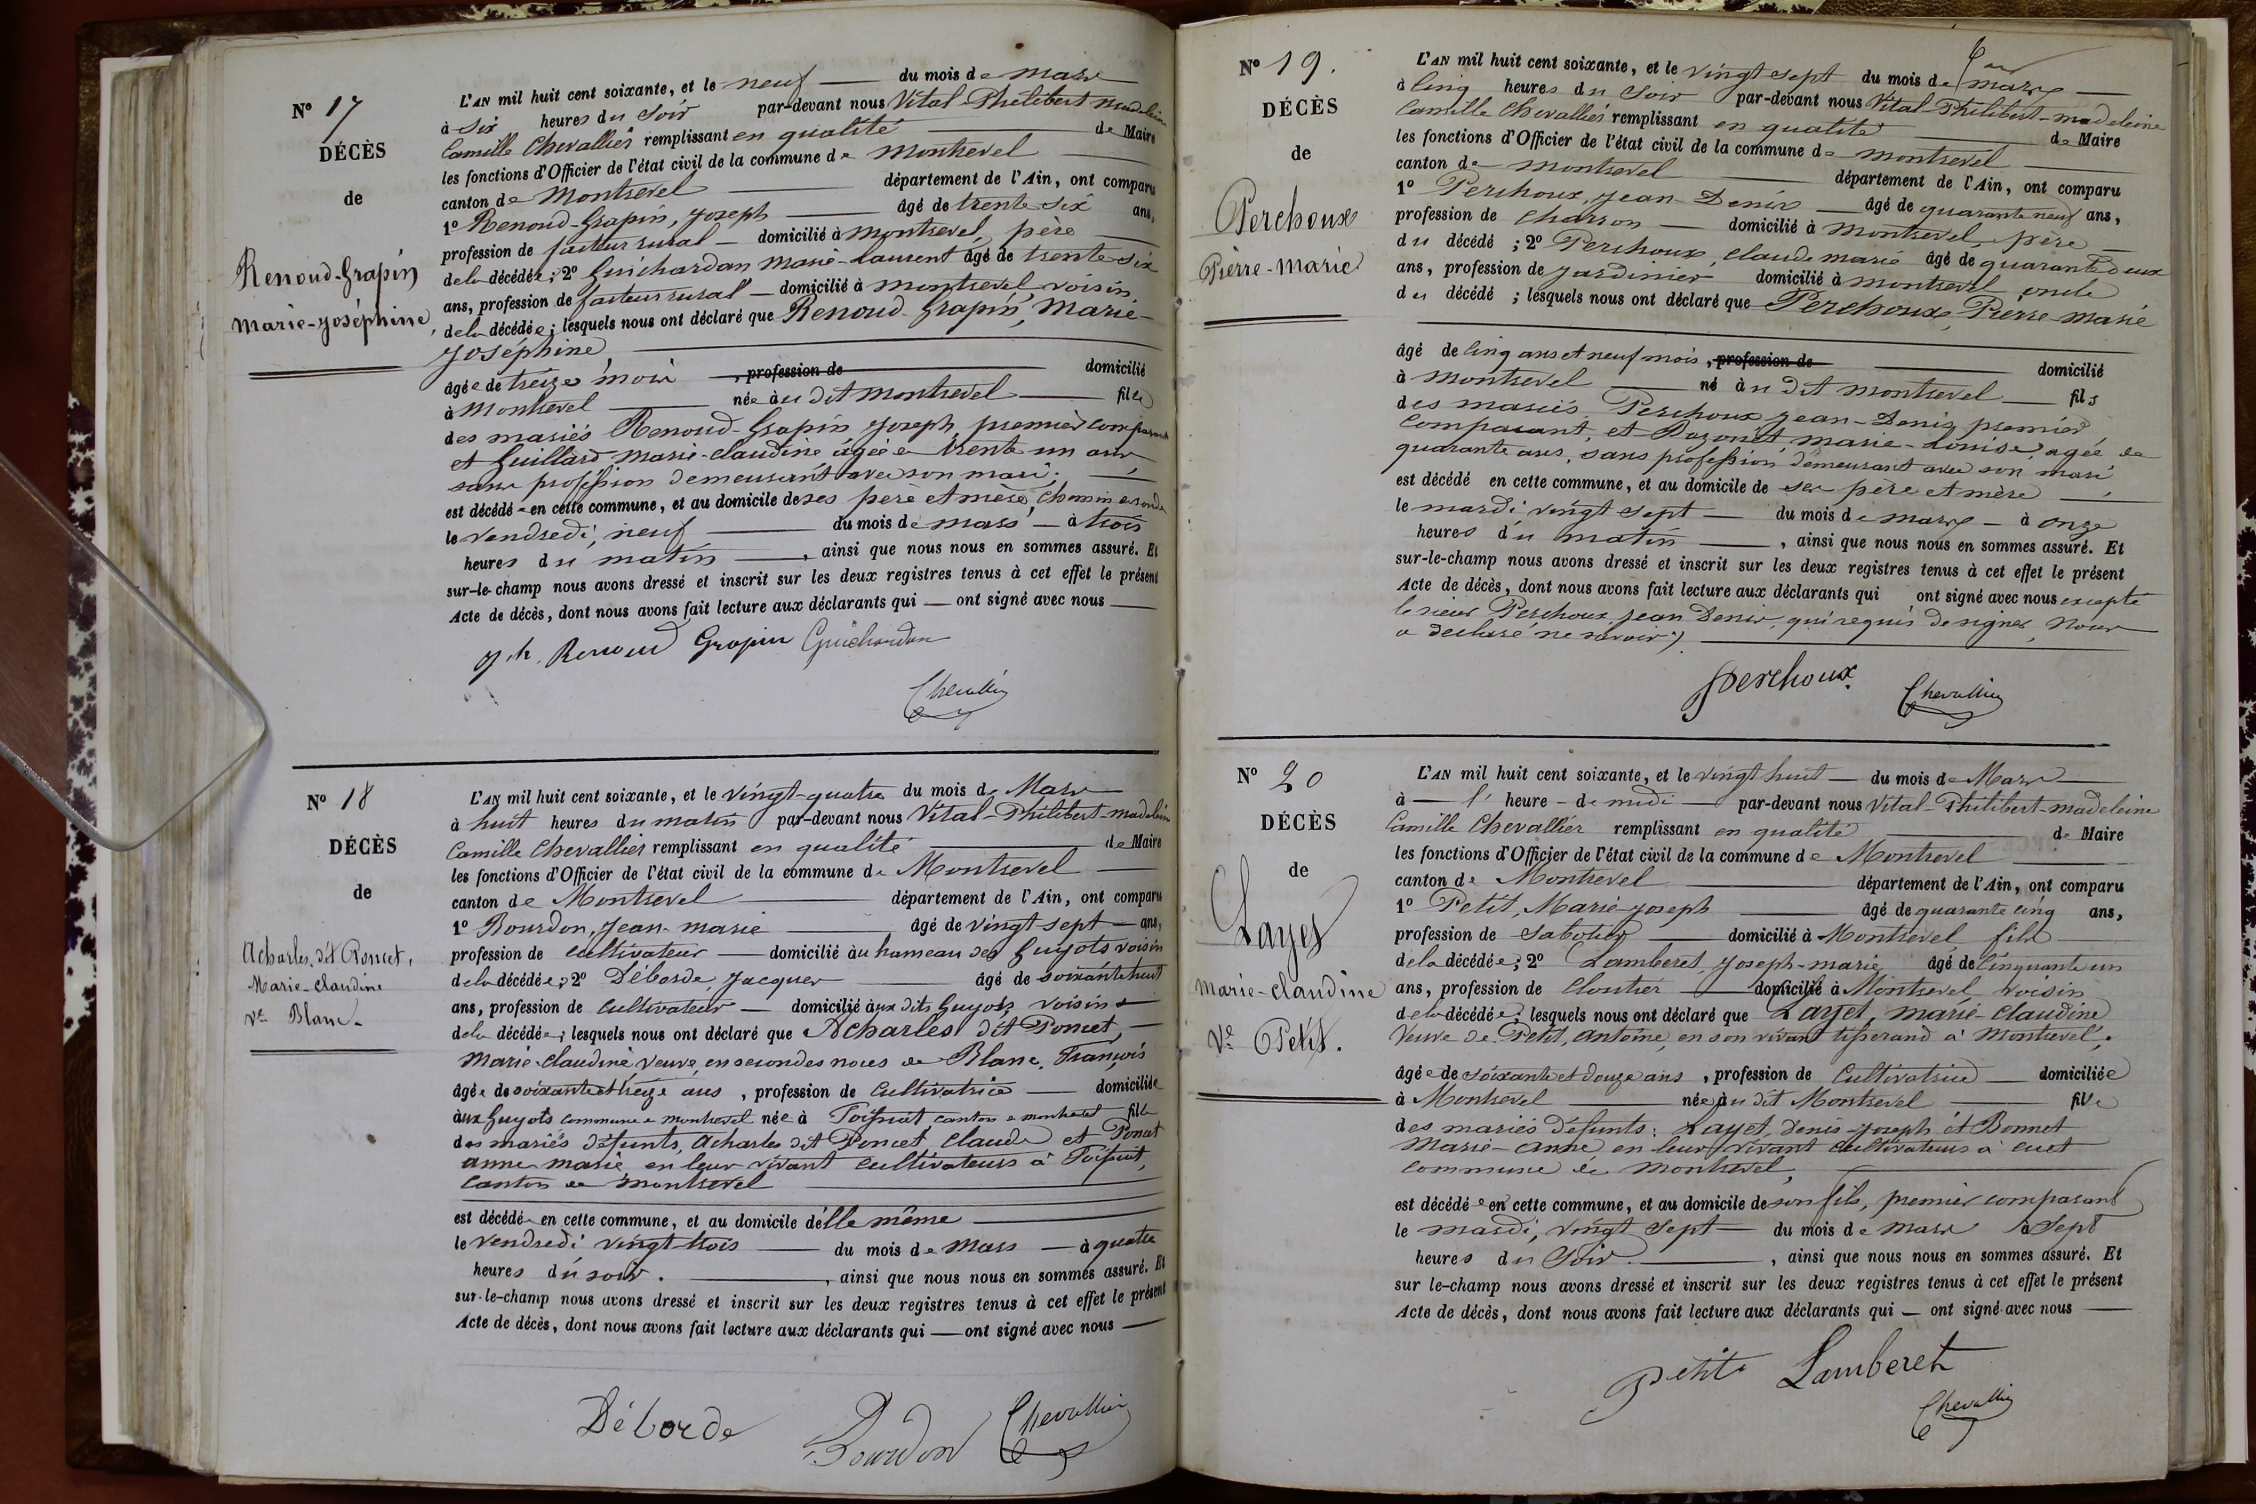 N° 17
DÉCÈS
de
Renoud-Grapin
Marie-Joséphine
L'AN mil huit cent soixante, et le neuf du mois de Mars
à six heures du soir par-devant nous Vital-Philibert Madeleine
Camille Chevallier remplissant en qualité de Maire
les fonctions d'Officier de l'état civil de la commune de Montrevel
canton de Montrevel département de l'Ain, ont comparu
1° Renoud-Grapin, Joseph âgé de trente six ans,
profession de facteur rural domicilié à Montrevel, père
de la décédée; 2° Guichardan Marie-Laurent âgé de trente six
ans, profession de facteur rural domicilié à Montrevel voisin
de la décédée; lesquels nous ont déclaré que Renoud-Grapin, Marie-
Joséphine
âgée de treize mois, profession de domicilié
à Montrevel née au dit Montrevel fille
des mariés Renoud-Grapin Joseph, premier comparant
et Guillard Marie-Claudine âgée de trente un ans
sans profession demeurant avec son mari;
est décédée en cette commune, et au domicile de ses père et mère, Chemin
le vendredi, neuf du mois de mars à trois
heures du matin, ainsi que nous nous en sommes assuré. Et
sur-le-champ nous avons dressé et inscrit sur les deux registres tenus à cet effet le présent
Acte de décès, dont nous avons fait lecture aux déclarants qui ont signé avec nous
Jh. Renoud Grapin Guichardan
Chevallier
N° 18
DÉCÈS
de
Acharles, dit Poncet,
Marie-Claudine
Ve Blanc.
L'AN mil huit cent soixante, et le vingt-quatre du mois de Mars
à huit heures du matin par-devant nous Vital-Philibert-Madeleine
Camille Chevallier remplissant en qualité de Maire
les fonctions d'Officier de l'état civil de la commune de Montrevel
canton de Montrevel département de l'Ain, ont comparu
1° Bourdon, Jean-Marie âgé de vingt sept ans,
profession de cultivateur domicilié au hameau des Guyots voisin
de la décédée; 2° Déborde, Jacques âgé de soixante huit
ans, profession de cultivateur domicilié aux dits Guyots, voisin
de la décédée; lesquels nous ont déclaré que Acharles dit Poncet,
Marie-Claudine, veuve, en secondes noces de Blanc, François
âgée de soixante et treize ans, profession de Cultivatrice domiciliée
aux Guyots commune de Montrevel née à Foissiat, canton de Montrevel fille
des mariés défunts, Acharles dit Poncet, Claude et Poncet
anne marie, en leur vivant cultivateurs à Foissiat,
canton de Montrevel
est décédée en cette commune, et au domicile d'elle même
le vendredi vingt trois du mois de Mars à quatre
heures du soir., ainsi que nous nous en sommes assuré. Et
sur-le-champ nous avons dressé et inscrit sur les deux registres tenus à cet effet le présent
Acte de décès, dont nous avons fait lecture aux déclarants qui ont signé avec nous
Déborde Bourdon Chevallier
N° 19.
DÉCÈS
de
Perchoux
Pierre-Marie
L'AN mil huit cent soixante, et le vingt sept du mois de mars
à cinq heures du soir par-devant nous Vital-Philibert-Madeleine
Camille Chevallier remplissant en qualité de Maire
les fonctions d'Officier de l'état civil de la commune de Montrevel
canton de Montrevel département de l'Ain, ont comparu
1° Perchoux, Jean-Denis âgé de quarante neuf ans,
profession de Charron domicilié à Montrevel, père
du décédé; 2° Perchoux, Claude marie âgé de quarante deux
ans, profession de Jardinier domicilié à Montrevel oncle
du décédé; lesquels nous ont déclaré que Perchoux, Pierre-Marie
âgé de cinq ans et neuf mois, profession de domicilié
à Montrevel né au dit Montrevel fils
des mariés Perchoux Jean-Denis premier
comparant, et Marie-Louise, âgée de
quarante ans, sans profession demeurant avec son mari,
est décédé en cette commune, et au domicile de ses père et mère
le mardi vingt sept du mois de mars à onze
heures du matin, ainsi que nous nous en sommes assuré. Et
sur-le-champ nous avons dressé et inscrit sur les deux registres tenus à cet effet le présent
Acte de décès, dont nous avons fait lecture aux déclarants qui ont signé avec nous excepté
le sieur Perchoux Jean Denis, qui requis de signer, nous
a déclaré ne savoir
Perchoux Chevallier
N° 20
DÉCÈS
de
Layet
Marie-Claudine
Ve Petit.
L'AN mil huit cent soixante, et le vingt huit du mois de Mars
à l' heure de midi par-devant nous Vital-Philibert-Madeleine
Camille Chevallier remplissant en qualité de Maire
les fonctions d'Officier de l'état civil de la commune de Montrevel
canton de Montrevel département de l'Ain, ont comparu
1° Petit, Marie-Joseph âgé de quarante cinq ans,
profession de Sabotier domicilié à Montrevel, fils
de la décédée; 2° Lamberet, Joseph-marie âgé de cinquante un
ans, profession de Cloutier domicilié à Montrevel voisin
de la décédée; lesquels nous ont déclaré que Layet, Marie-Claudine
Veuve de Petit, Antoine, en son vivant tisserand à Montrevel,
âgée de soixante et douze ans, profession de Cultivatrice domiciliée
à Montrevel née au dit Montrevel fille
des mariés défunts: Layet, Denis-Joseph et Bonnet
Marie-Anne, en leur vivant cultivateurs à Cuet
commune de Montrevel,
est décédée en cette commune, et au domicile de son fils, premier comparant
le mardi, vingt sept du mois de Mars à sept
heures du soir., ainsi que nous nous en sommes assuré. Et
sur le-champ nous avons dressé et inscrit sur les deux registres tenus à cet effet le présent
Acte de décès, dont nous avons fait lecture aux déclarants qui ont signé avec nous
Petit Lamberet
Chevallier